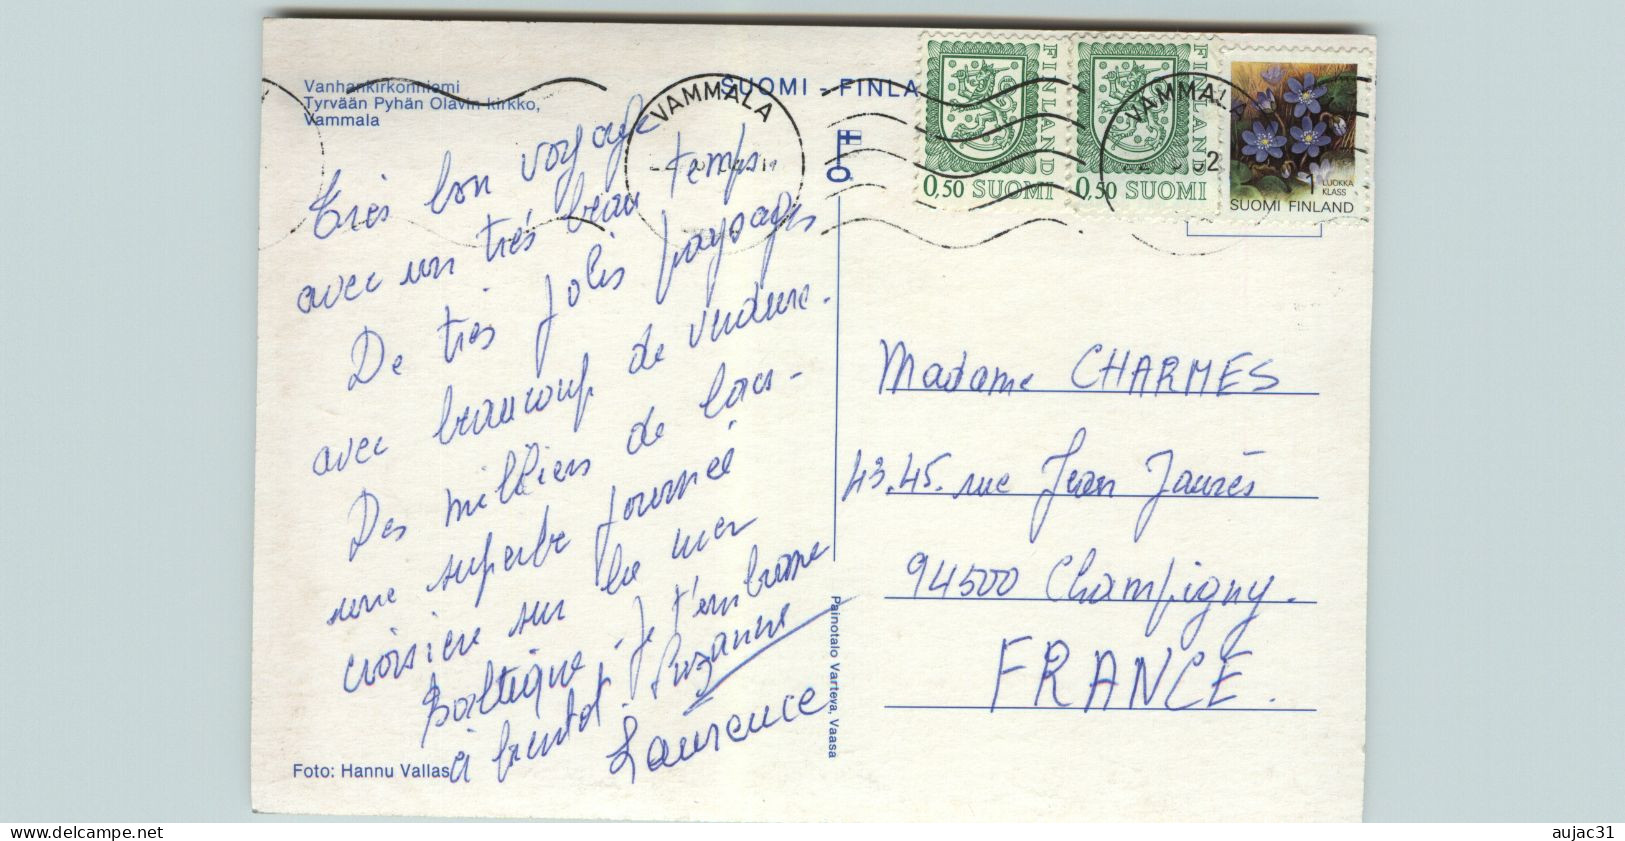 Vanhankirkonniemi
Tyrvään Pyhän Olavin kirkko,
Vammala
SUOMI - FINLA
VAMMALA
FINLAND
0,50 SUOMI
FINLAND
0,50 SUOMI
VAMMAL
2
1 LUOKKA
KLASS
SUOMI FINLAND
Très bon voyage
avec un très beau temps
De très jolis paysages
avec beaucoup de verdure.
Des milliers de lacs -
une superbe journée
croisière sur la mer
Baltique. Je t'embrasse
à bientôt. Suzanne
Laurence
Madame CHARMES
43.45. rue Jean Jaurès
94500 Champigny.
FRANCE.
Painotalo Varteva, Vaasa
Foto: Hannu Vallas
delcampe.net
aujac31